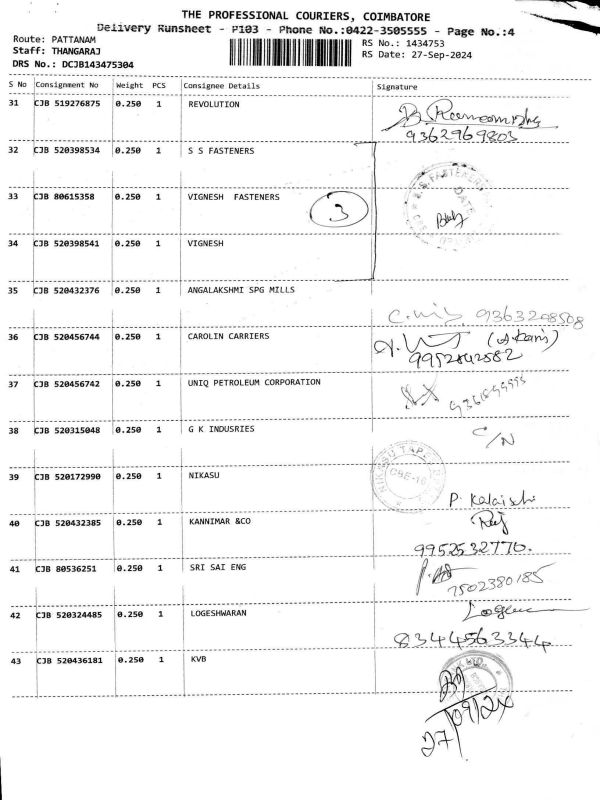 THE PROFESSIONAL COURIERS, COIMBATORE
Delivery Runsheet - P103 - Phone No.:0422-3505555 - Page No.:4
Route: PATTANAM
RS No.: 1434753
Staff: THANGARAJ
RS Date: 27-Sep-2024
DRS No.: DCJB143475304
S No Consignment No Weight PCS Consignee Details Signature
31 CJB 519276875 0.250 1 REVOLUTION
9362969803
32 CJB 520398534 0.250 1 S S FASTENERS
33 CJB 80615358 0.250 1 VIGNESH FASTENERS
3
34 CJB 520398541 0.250 1 VIGNESH
35 CJB 520432376 0.250 1 ANGALAKSHMI SPG MILLS
9363298508
36 CJB 520456744 0.250 1 CAROLIN CARRIERS
9952842582
37 CJB 520456742 0.250 1 UNIQ PETROLEUM CORPORATION
38 CJB 520315048 0.250 1 G K INDUSRIES
C/N
39 CJB 520172990 0.250 1 NIKASU
CBE-16
40 CJB 520432385 0.250 1 KANNIMAR &CO
9952532770.
41 CJB 80536251 0.250 1 SRI SAI ENG
7502380185
42 CJB 520324485 0.250 1 LOGESHWARAN
8344563344
43 CJB 520436181 0.250 1 KVB
27/09/24